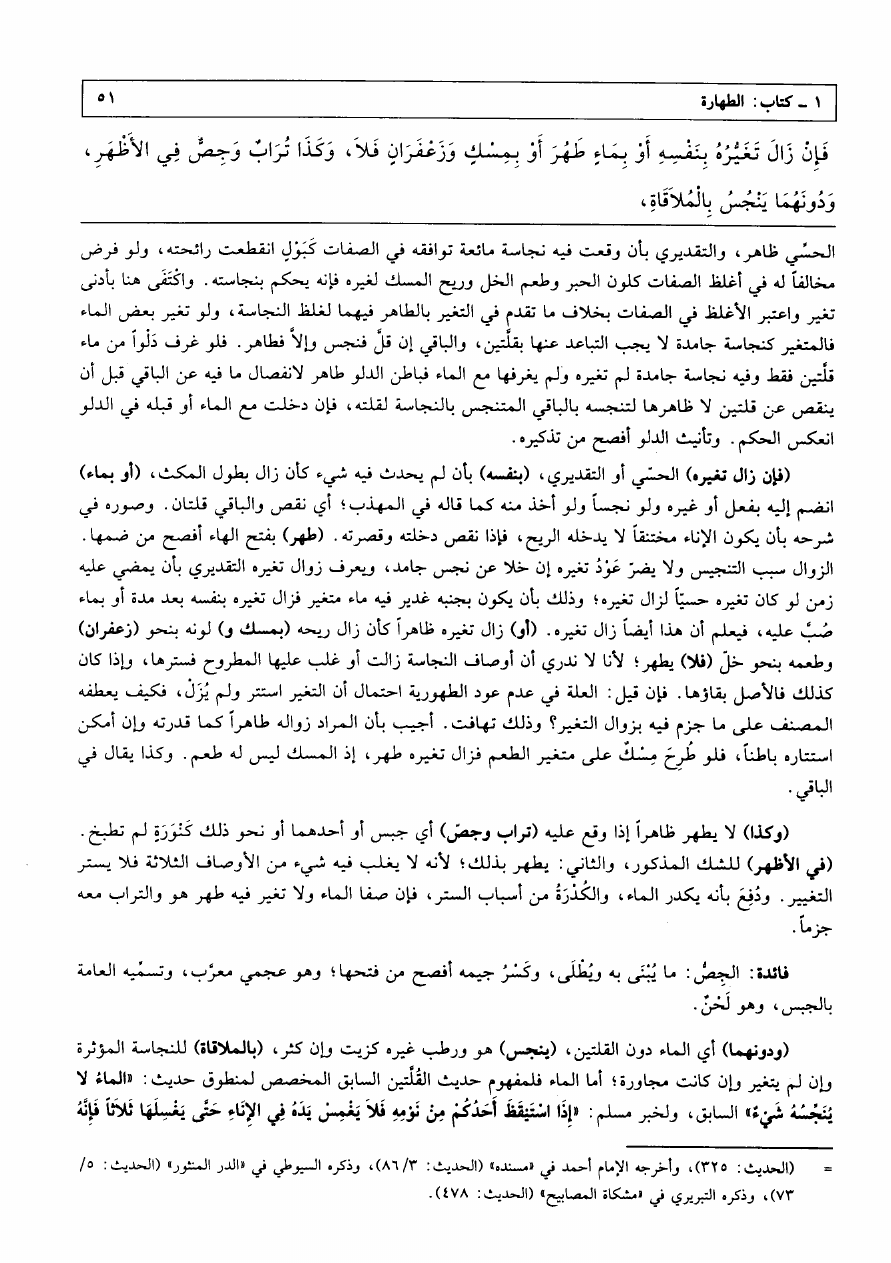 ١ ـ كتاب: الطهارة
٥١
فَإِنْ زَالَ تَغَيُّرُهُ بِنَفْسِهِ أَوْ بِمَاءٍ طَهُرَ أَوْ بِمِسْكٍ وَزَعْفَرَانٍ فَلاَ، وَكَذَا تُرَابٌ وَجِصٌّ فِي الأَظْهَرِ،
وَدُونَهُمَا يَنْجُسُ بِالْمُلاَقَاةِ،
الحسِّي ظاهر، والتقديري بأن وقعت فيه نجاسة مائعة توافقه في الصفات كَبَوْلٍ انقطعت رائحته، ولو فرض
مخالفاً له في أغلظ الصفات كلون الحبر وطعم الخل وريح المسك لغيره فإنه يحكم بنجاسته. واكْتَفَى هنا بأدنى
تغير واعتبر الأغلظ في الصفات بخلاف ما تقدم في التغير بالطاهر فيهما لغلظ النجاسة، ولو تغير بعض الماء
فالمتغير كنجاسة جامدة لا يجب التباعد عنها بقلَّتين، والباقي إن قلَّ فنجس وإلاَّ فطاهر. فلو غرف دَلْواً من ماء
قلَّتين فقط وفيه نجاسة جامدة لم تغيره ولم يغرفها مع الماء فباطن الدلو طاهر لانفصال ما فيه عن الباقي قبل أن
ينقص عن قلتين لا ظاهرها لتنجسه بالباقي المتنجس بالنجاسة لقلته، فإن دخلت مع الماء أو قبله في الدلو
انعكس الحكم. وتأنيث الدلو أفصح من تذكيره.
(فإن زال تغيره) الحسّي أو التقديري، (بنفسه) بأن لم يحدث فيه شيء كأن زال بطول المكث، (أو بماء)
انضم إليه بفعل أو غيره ولو نجساً ولو أخذ منه كما قاله في المهذب؛ أي نقص والباقي قلتان. وصوره في
شرحه بأن يكون الإناء مختنقاً لا يدخله الريح، فإذا نقص دخلته وقصرته. (طهر) بفتح الهاء أفصح من ضمها.
الزوال سبب التنجيس ولا يضرّ عَوْدُ تغيره إن خلا عن نجس جامد، ويعرف زوال تغيره التقديري بأن يمضي عليه
زمن لو كان تغيره حسيّاً لزال تغيره؛ وذلك بأن يكون بجنبه غدير فيه ماء متغير فزال تغيره بنفسه بعد مدة أو بماء
صُبَّ عليه، فيعلم أن هذا أيضاً زال تغيره. (أو) زال تغيره ظاهراً كأن زال ريحه (بمسك و) لونه بنحو (زعفران)
وطعمه بنحو خلّ (فلا) يطهر؛ لأنا لا ندري أن أوصاف النجاسة زالت أو غلب عليها المطروح فسترها، وإذا كان
كذلك فالأصل بقاؤها. فإن قيل: العلة في عدم عود الطهورية احتمال أن التغير استتر ولم يُزَلْ، فكيف يعطفه
المصنف على ما جزم فيه بزوال التغير؟ وذلك تهافت. أجيب بأن المراد زواله ظاهراً كما قدرته وإن أمكن
استتاره باطناً، فلو طُرِحَ مِسْكٌ على متغير الطعم فزال تغيره طهر، إذ المسك ليس له طعم. وكذا يقال في
الباقي.
(وكذا) لا يطهر ظاهراً إذا وقع عليه (تراب وجصّ) أي جبس أو أحدهما أو نحو ذلك كَنُوَرَةٍ لم تطبخ.
(في الأظهر) للشك المذكور، والثاني: يطهر بذلك؛ لأنه لا يغلب فيه شيء من الأوصاف الثلاثة فلا يستر
التغيير. ودُفِعَ بأنه يكدر الماء، والكُدْرَةُ من أسباب الستر، فإن صفا الماء ولا تغير فيه طهر هو والتراب معه
جزماً.
فائدة: الجِصُّ: ما يُبْنَى به ويُطْلَى، وكَسْرُ جيمه أفصح من فتحها؛ وهو عجمي معرَّب، وتسمِّيه العامة
بالجبس، وهو لَحْنٌ.
(ودونهما) أي الماء دون القلتين، (ينجس) هو ورطب غيره كزيت وإن كثر، (بالملاقاة) للنجاسة المؤثرة
وإن لم يتغير وإن كانت مجاورة؛ أما الماء فلمفهوم حديث القُلَّتين السابق المخصص لمنطوق حديث: «الماءُ لا
يُنَجِّسُهُ شَيْءٌ» السابق، ولخبر مسلم: «إِذَا اسْتَيْقَظَ أَحَدُكُمْ مِنْ نَوْمِهِ فَلاَ يَغْمِسْ يَدَهُ فِي الإِنَاءِ حَتَّى يَغْسِلَهَا ثَلاَثاً فَإِنَّهُ
= (الحديث: ٣٢٥)، وأخرجه الإمام أحمد في «مسنده» (الحديث: ٨٦/٣)، وذكره السيوطي في «الدر المنثور» (الحديث: ٥/
٧٣)، وذكره التبريزي في «مشكاة المصابيح» (الحديث: ٤٧٨).